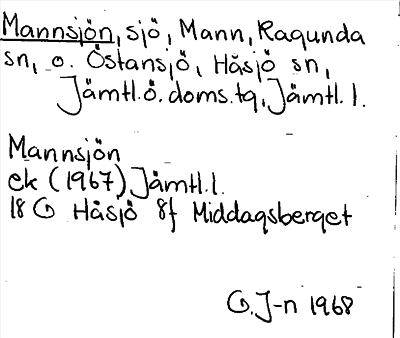 Mannsjön, sjö, Mann, Ragunda
sn, o. Östansjö, Håsjö sn,
Jämtl.ö.doms.tg, Jämtl. l.
Mannsjön
ek (1967) Jämtl.l.
18 G Håsjö 8f Middagsberget
G.J-n 1968